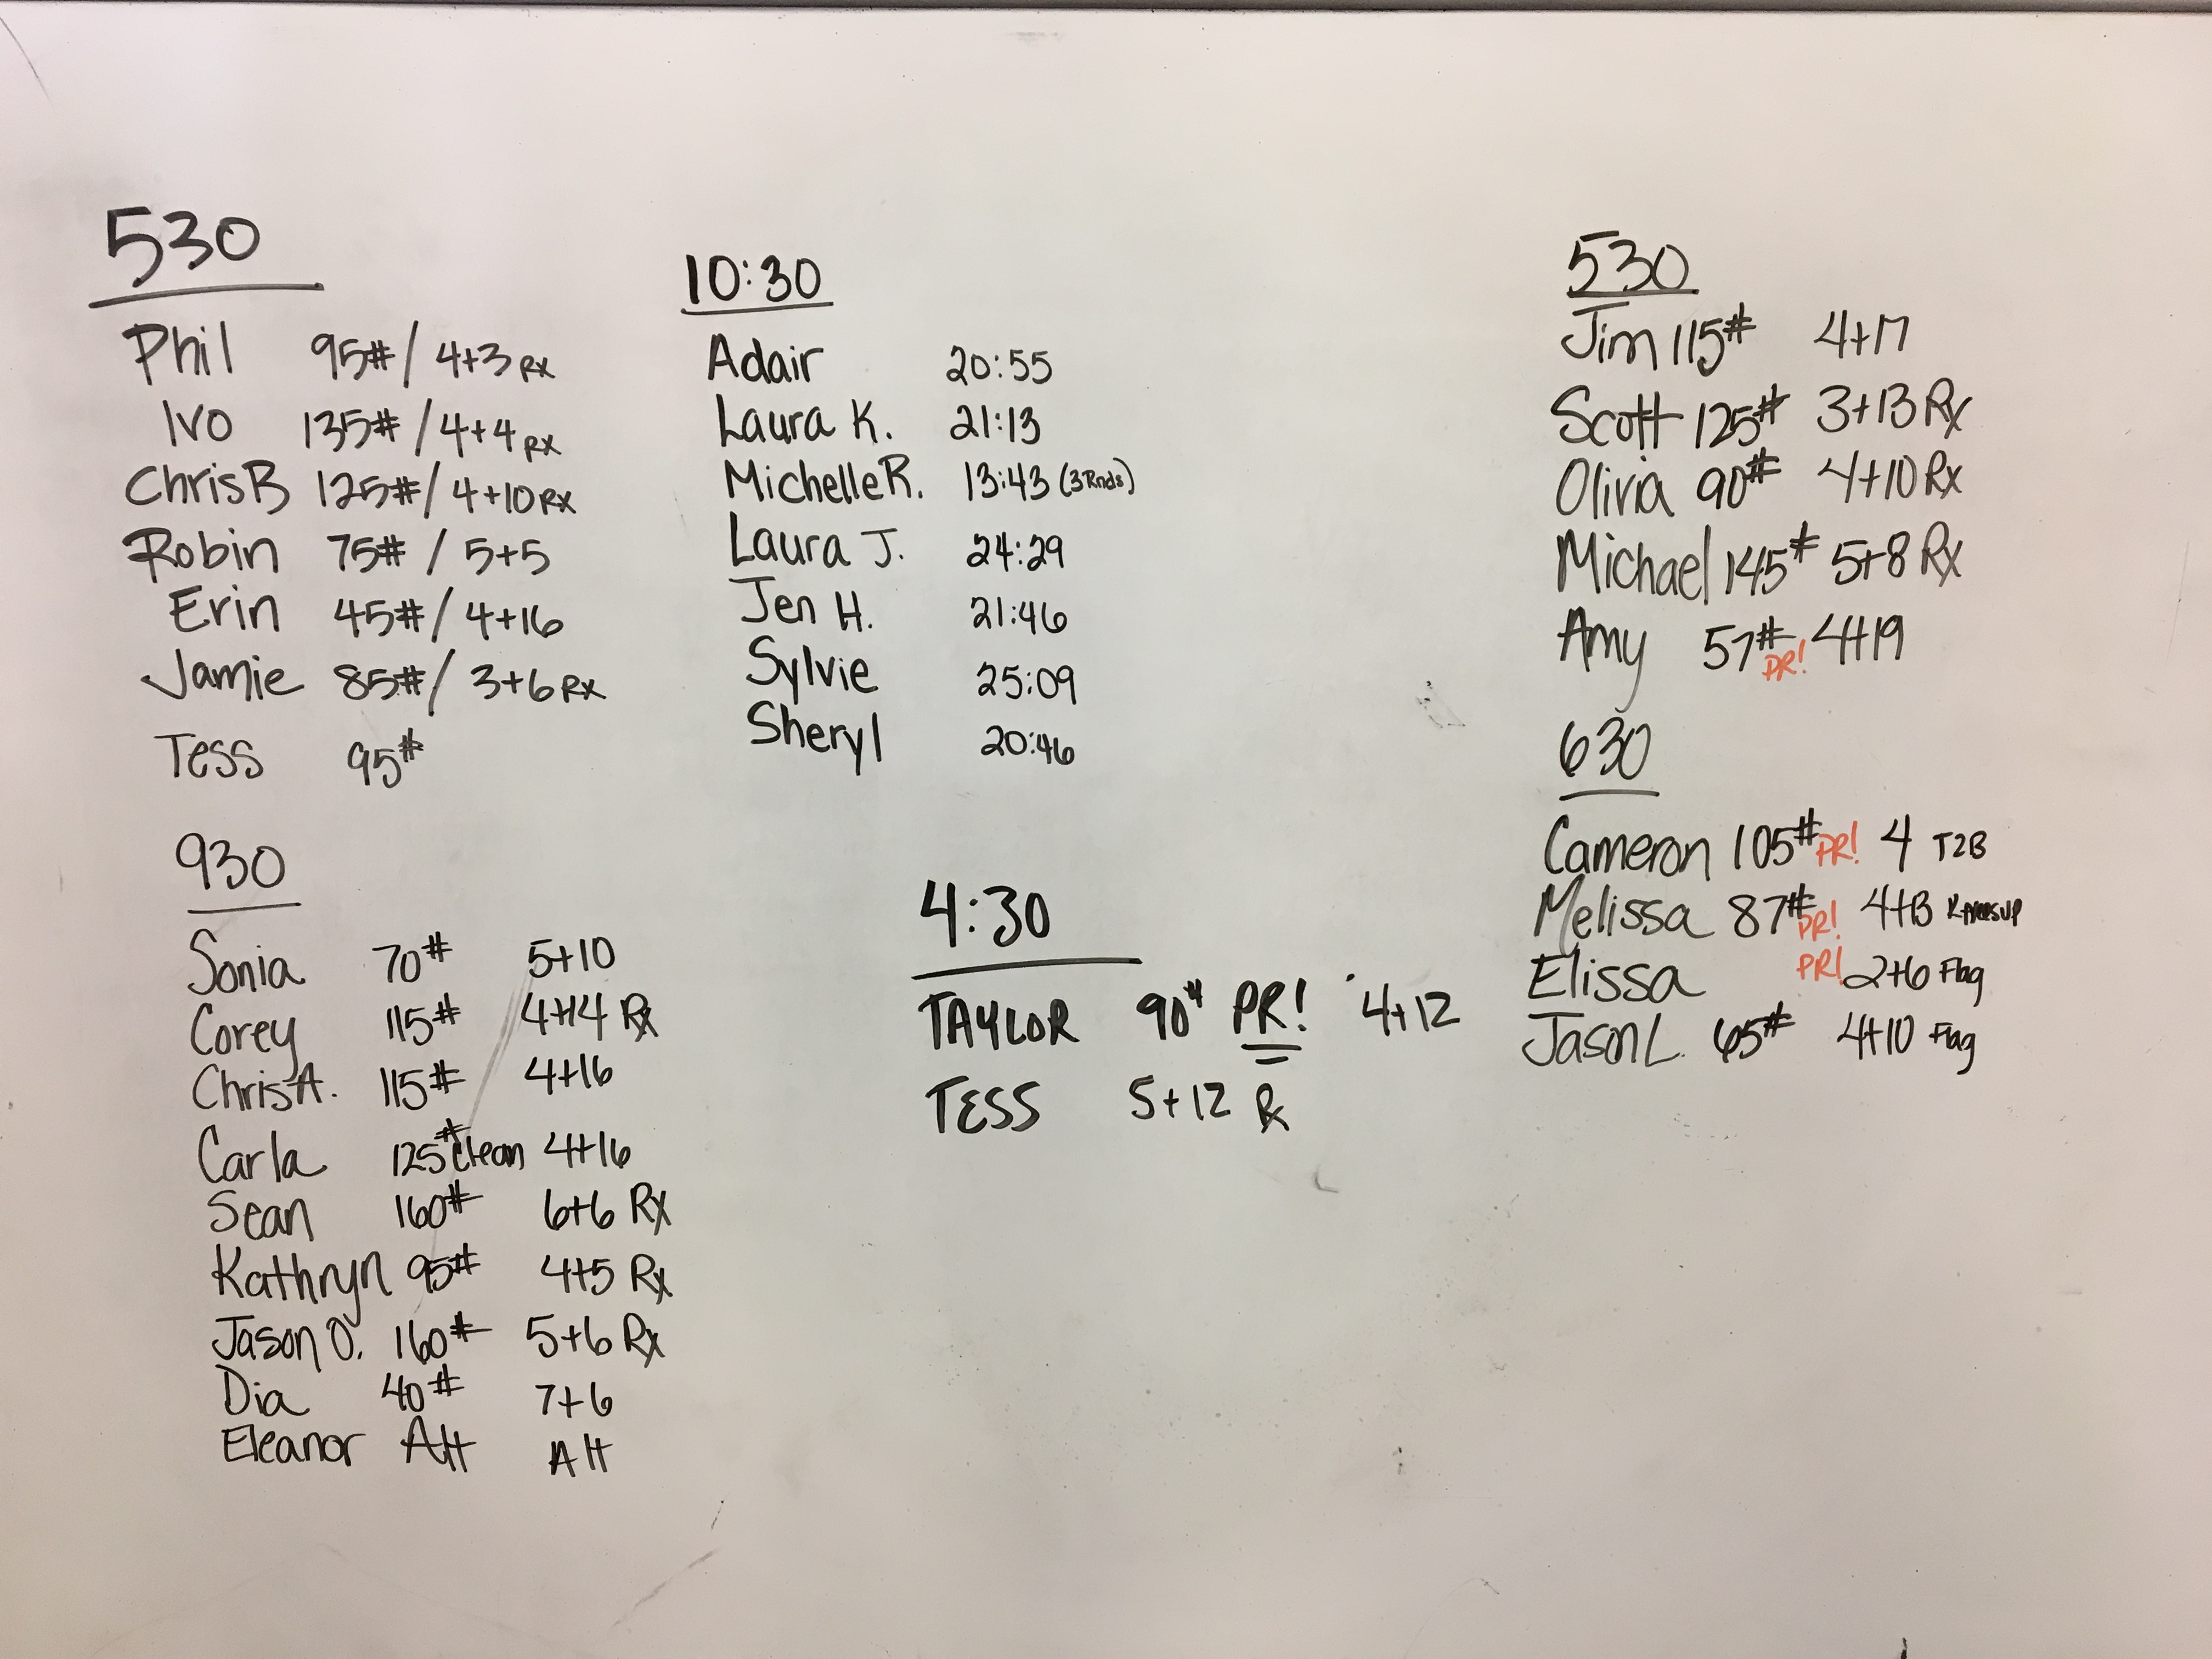 530
Phil 95#/ 4+3 Rx
Ivo 135# / 4+4 Rx
Chris B 125#/ 4+10 Rx
Robin 75# / 5+5
Erin 45# / 4+16
Jamie 85#/ 3+6 Rx
Tess 95#
930
Sonia 70# 5+10
Corey 115# 4+14 Rx
Chris A. 115# 4+16
Carla 125# clean 4+16
Sean 160# 6+6 Rx
Kathryn 95# 4+5 Rx
Jason O. 160# 5+6 Rx
Dia 40# 7+6
Eleanor Alt Alt
10:30
Adair 20:55
Laura K. 21:13
Michelle R. 13:43 (3 Rnds)
Laura J. 24:29
Jen H. 21:46
Sylvie 25:09
Sheryl 20:46
4:30
TAYLOR 90# PR! 4+12
TESS 5+12 Rx
530
Jim 115# 4+17
Scott 125# 3+13 Rx
Olivia 90# 4+10 Rx
Michael 145# 5+8 Rx
Amy 57# PR! 4+19
630
Cameron 105# PR! 4 T2B
Melissa 87# PR! 4+13
Elissa PR! 2+6 Flag
Jason L. 65# 4+10 Flag